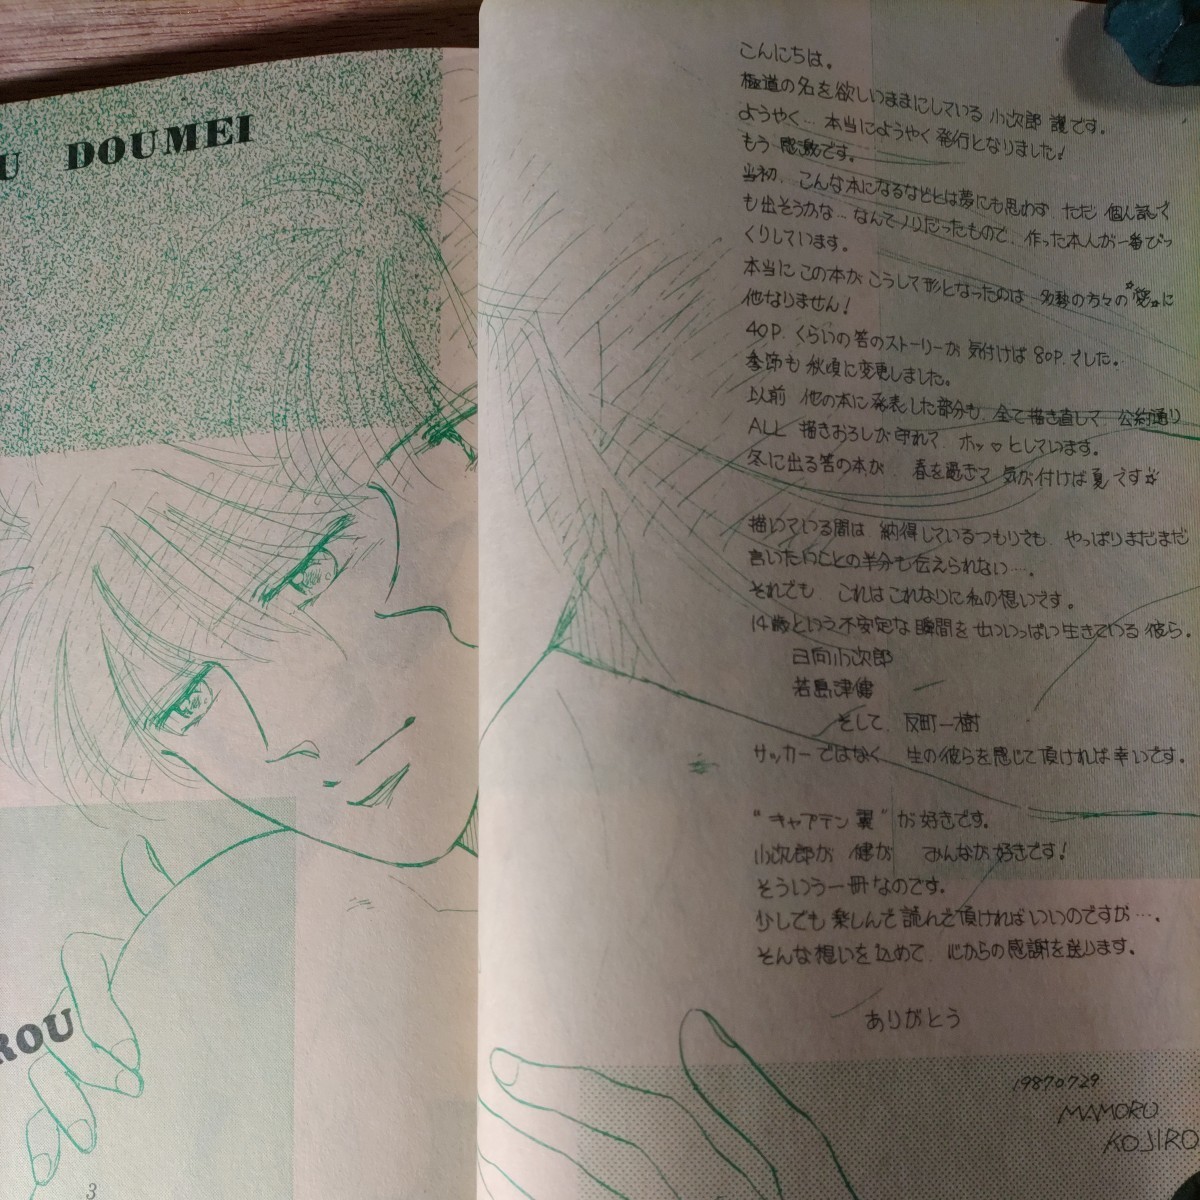 U DOUMEI
ROU
3
こんにちは。
極道の名を欲しいままにしている 小次郎 護です。
ようやく… 本当にようやく 発行となりました!
もう 感激です。
当初、こんな本になるなどとは夢にも思わず ただ 個人誌で
も出そうかな… なんてノリだったもので、作った本人が一番びっ
くりしています。
本当に この本が こうして形となったのは 多勢の方々の"愛"に
他なりません!
40P. くらいの筈のストーリーが 気付けば 80P. でした。
季節も 秋頃に変更しました。
以前 他の本に発表した部分も、全て描き直して、公約通り
ALL 描きおろしが守れて、ホッ♡としています。
冬に出る筈の本が、春を過ぎて 気が付けば夏です☆
描いている間は 納得しているつもりでも、やっぱりまだまだ
言いたいことの半分も伝えられない…。
それでも これはこれなりに私の想いです。
14歳という不安定な瞬間を せいいっぱい生きている彼ら。
日向小次郎
若島津健
そして、反町一樹
サッカーではなく 生の彼らを感じて頂ければ幸いです。
"キャプテン翼"が好きです。
小次郎が 健が みんなが好きです!
そういう一冊なのです。
少しでも楽しんで読んで頂ければいいのですが…。
そんな想いを込めて、心からの感謝を送ります。
ありがとう
19870729
MAMORU
KOJIRO